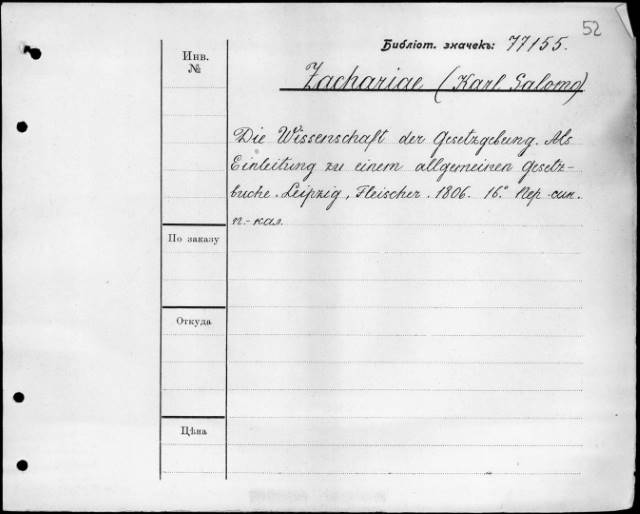 52
Библіот. значекъ: 77155.
Инв.
№
Zachariae (Karl Salomo)
Die Wissenschaft der Gesetzgebung. Als
Einleitung zu einem allgemeinen Gesetz-
buche. Leipzig, Fleischer. 1806. 16.° Пер-син.
п.-кал.
По заказу
Откуда
Цѣна